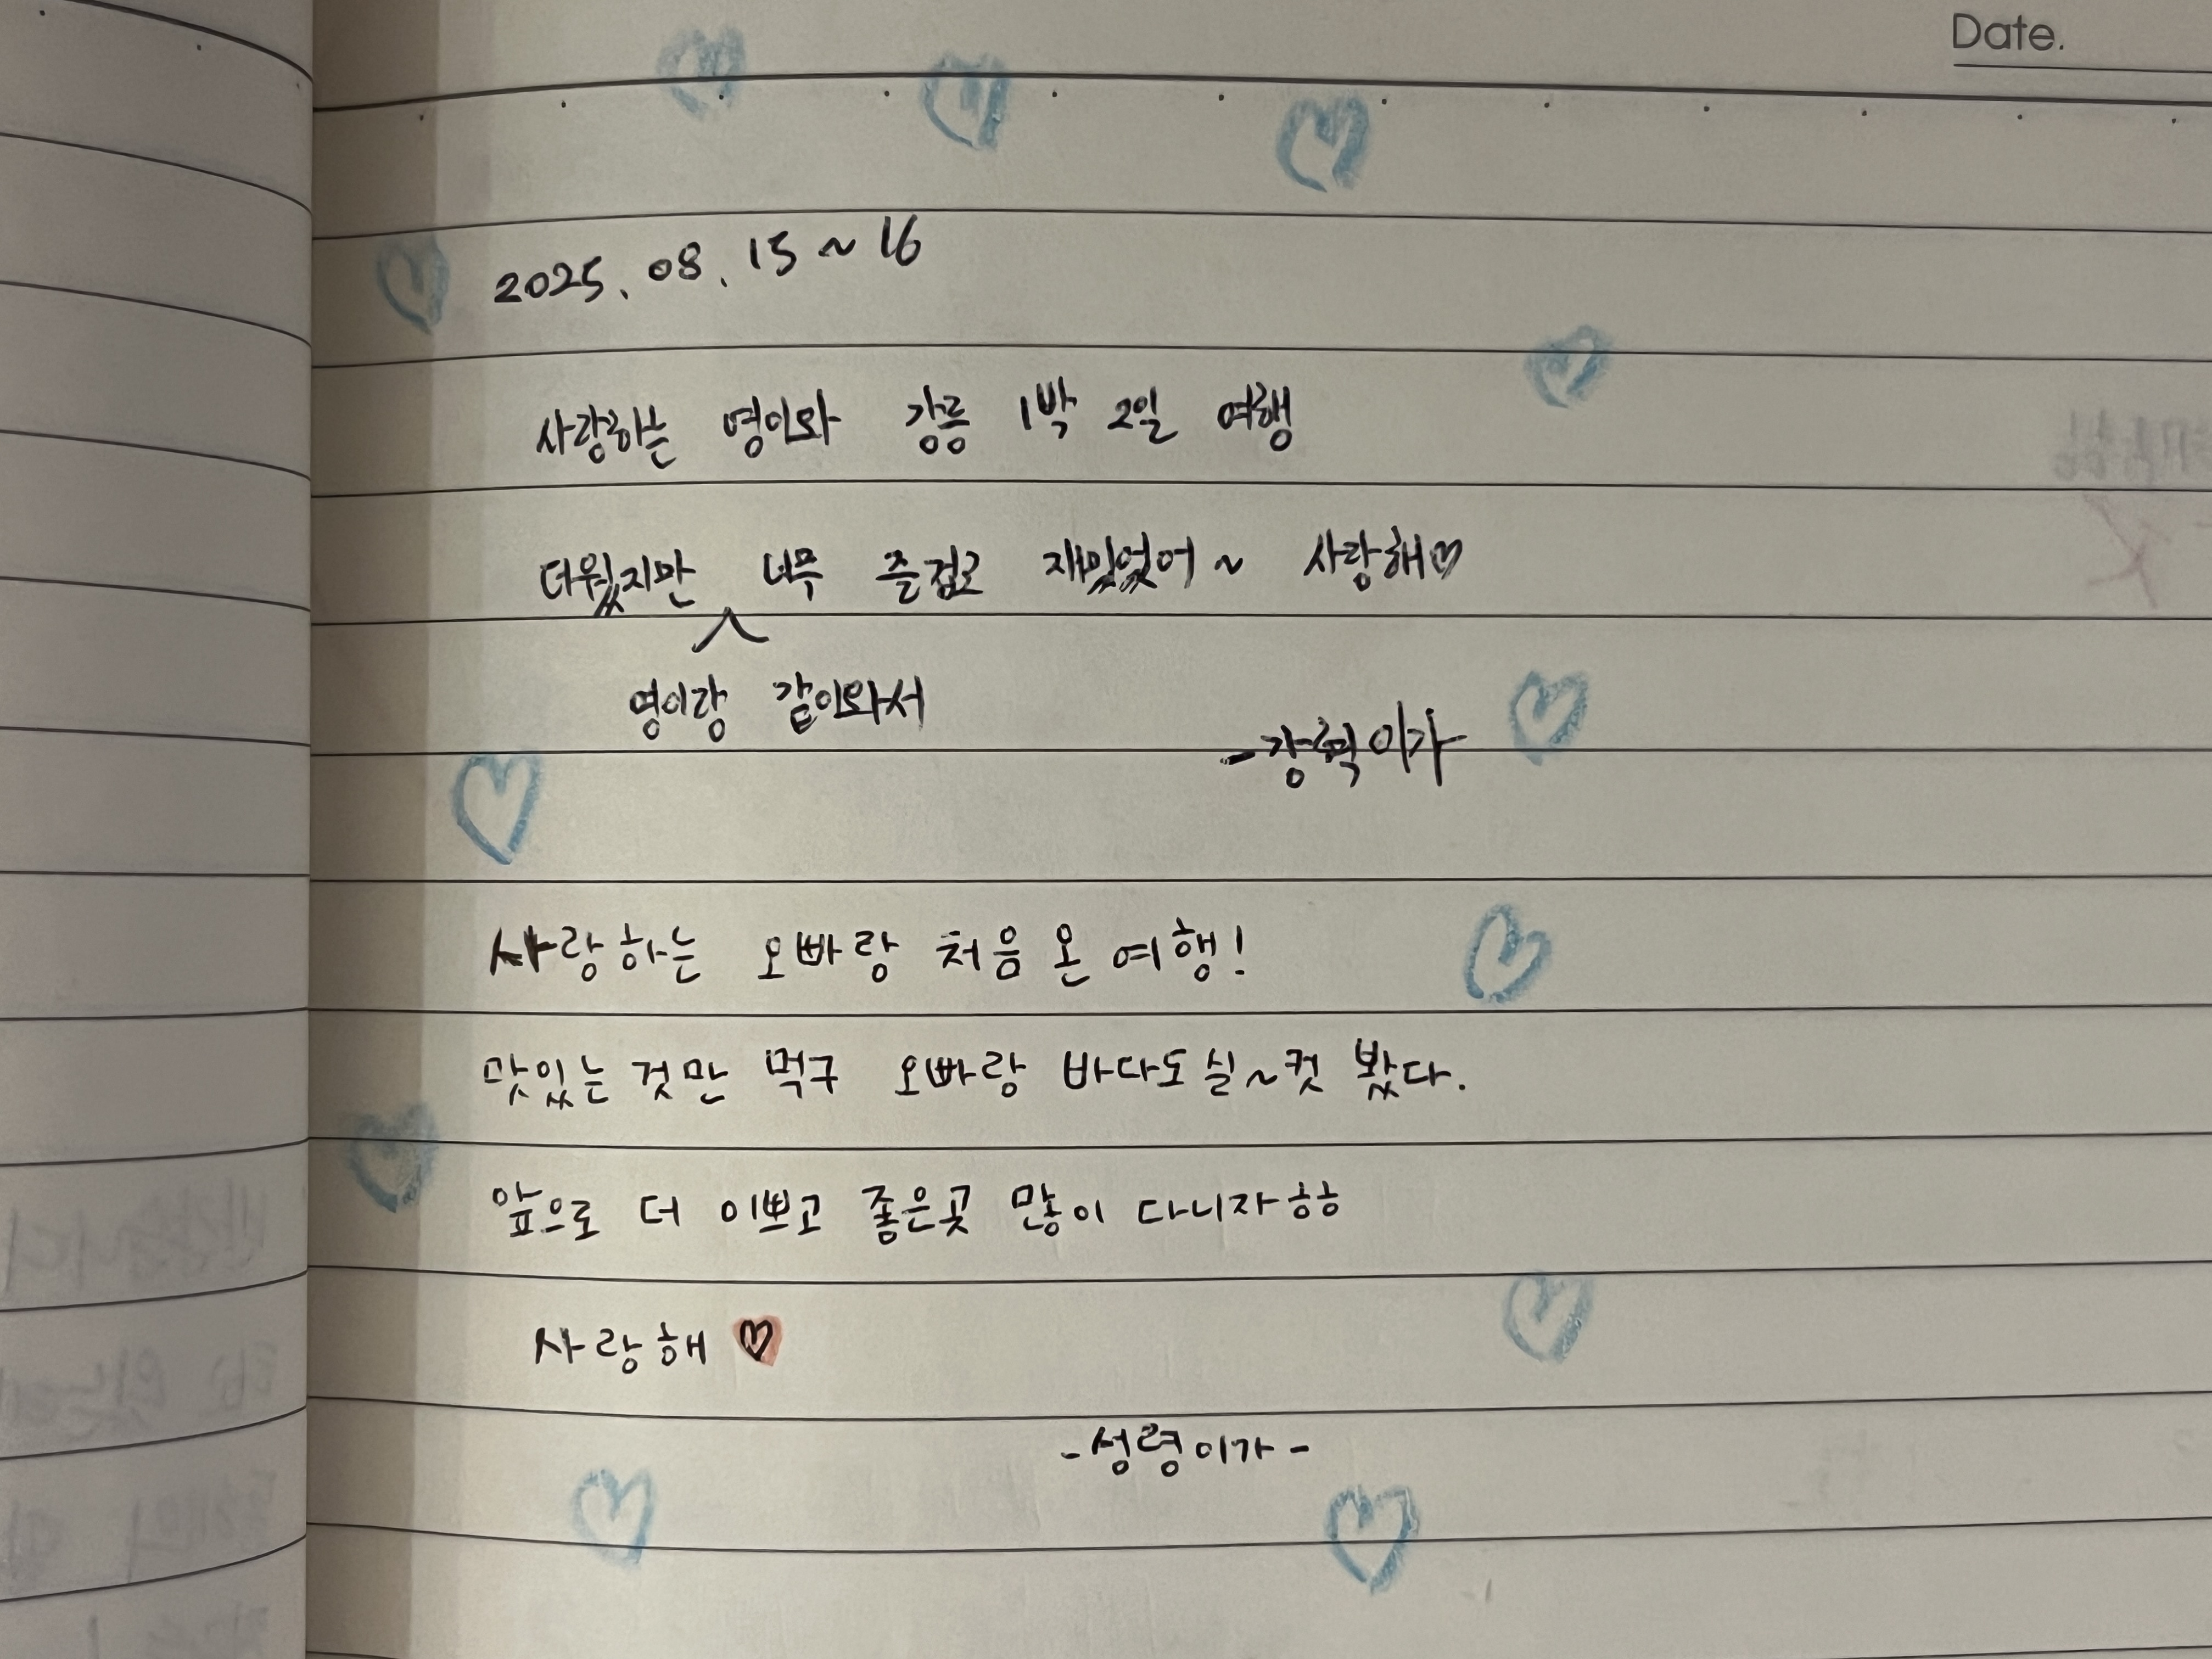 Date.
2025. 08. 15 ~ 16
사랑하는 영이와 강릉 1박 2일 여행
더웠지만 너무 즐겁고 재밌었어~ 사랑해♡
영이랑 같이와서
-강혁이가
사랑하는 오빠랑 처음 온 여행!
맛있는 것만 먹구 오빠랑 바다도 실~컷 봤다.
앞으로 더 이쁘고 좋은곳 많이 다니자 ㅎㅎ
사랑해 ♡
-성령이가-